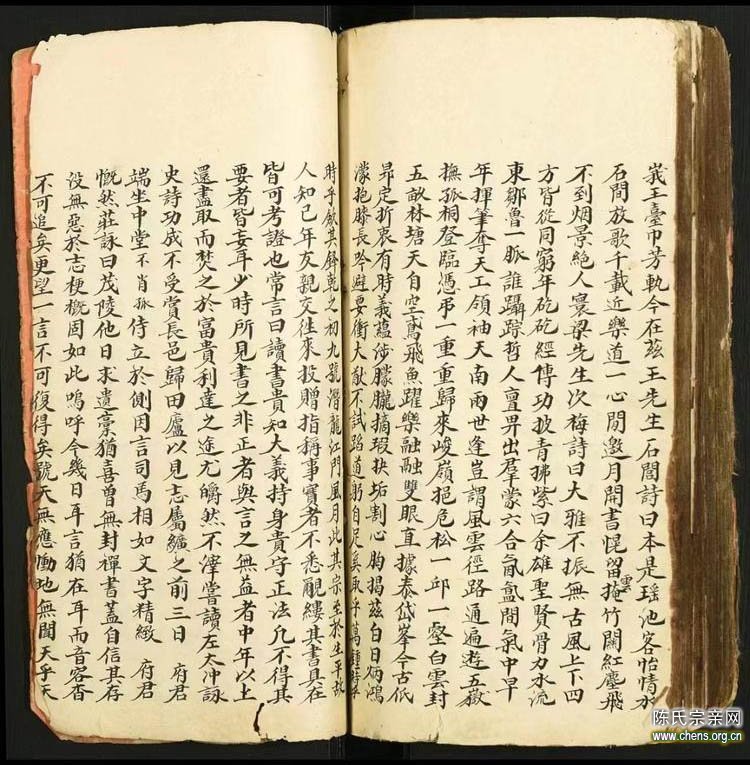 莪王臺巾芳軌今在茲王先生石閭詩曰本是瑶池客怡情水
石間放歌千載近樂道一心閒邀月開書幌留雲掩竹闌紅塵飛
不到烟景絶人寰梁先生次梅詩曰大雅不振無古風上下四
方皆從同窮年矻矻經傳功披青拂紫曰余雄聖賢骨力水流
東鄒魯一脈誰躡踪哲人亶畀出羣蒙六合氤氳間氣中早
年揮筆奪天工領袖天南兩世逢豈謂風雲徑路通遍遊五嶽
撫孤桐登臨憑弔一重重歸來峻嶺挹危松一邱一壑白雲封
五畝林塘天自空鳶飛魚躍樂融融雙眼直據泰岱峯今古低
昻定折衷有時義蘊涉朦朧摘瑕抉垢割心胸揭茲白日炳鴻
濛抱膝長吟避要衝大猷不試蹈道躬自足奚取乎萬鍾時乎
時乎飲其鋒乾之初九號潛龍江門風月此其宗至於生平故
人知己年友親交往來投贈指稱事實者不悉覼縷其書具在
皆可考證也常言曰讀書貴知大義持身貴守正法凢不得其
要者皆妄耳少時所見書之非正者與言之無益者中年以上
還盡取而焚之於富貴利達之途尢皭然不滓嘗讀左太冲詠
史詩功成不受賞長邑歸田廬以見志屬纊之前三日 府君
端坐中堂不肖孤侍立於側因言司馬相如文字精緻 府君
慨然莊詠曰茂陵他日求遺稾猶喜曾無封禪書蓋自信其存
没無惡於志梗概固如此嗚呼今幾日耳言猶在耳而音容杳
不可追矣更望一言不可復得矣號天無應慟地無聞天乎天
陈氏宗亲网
www.chens.org.cn